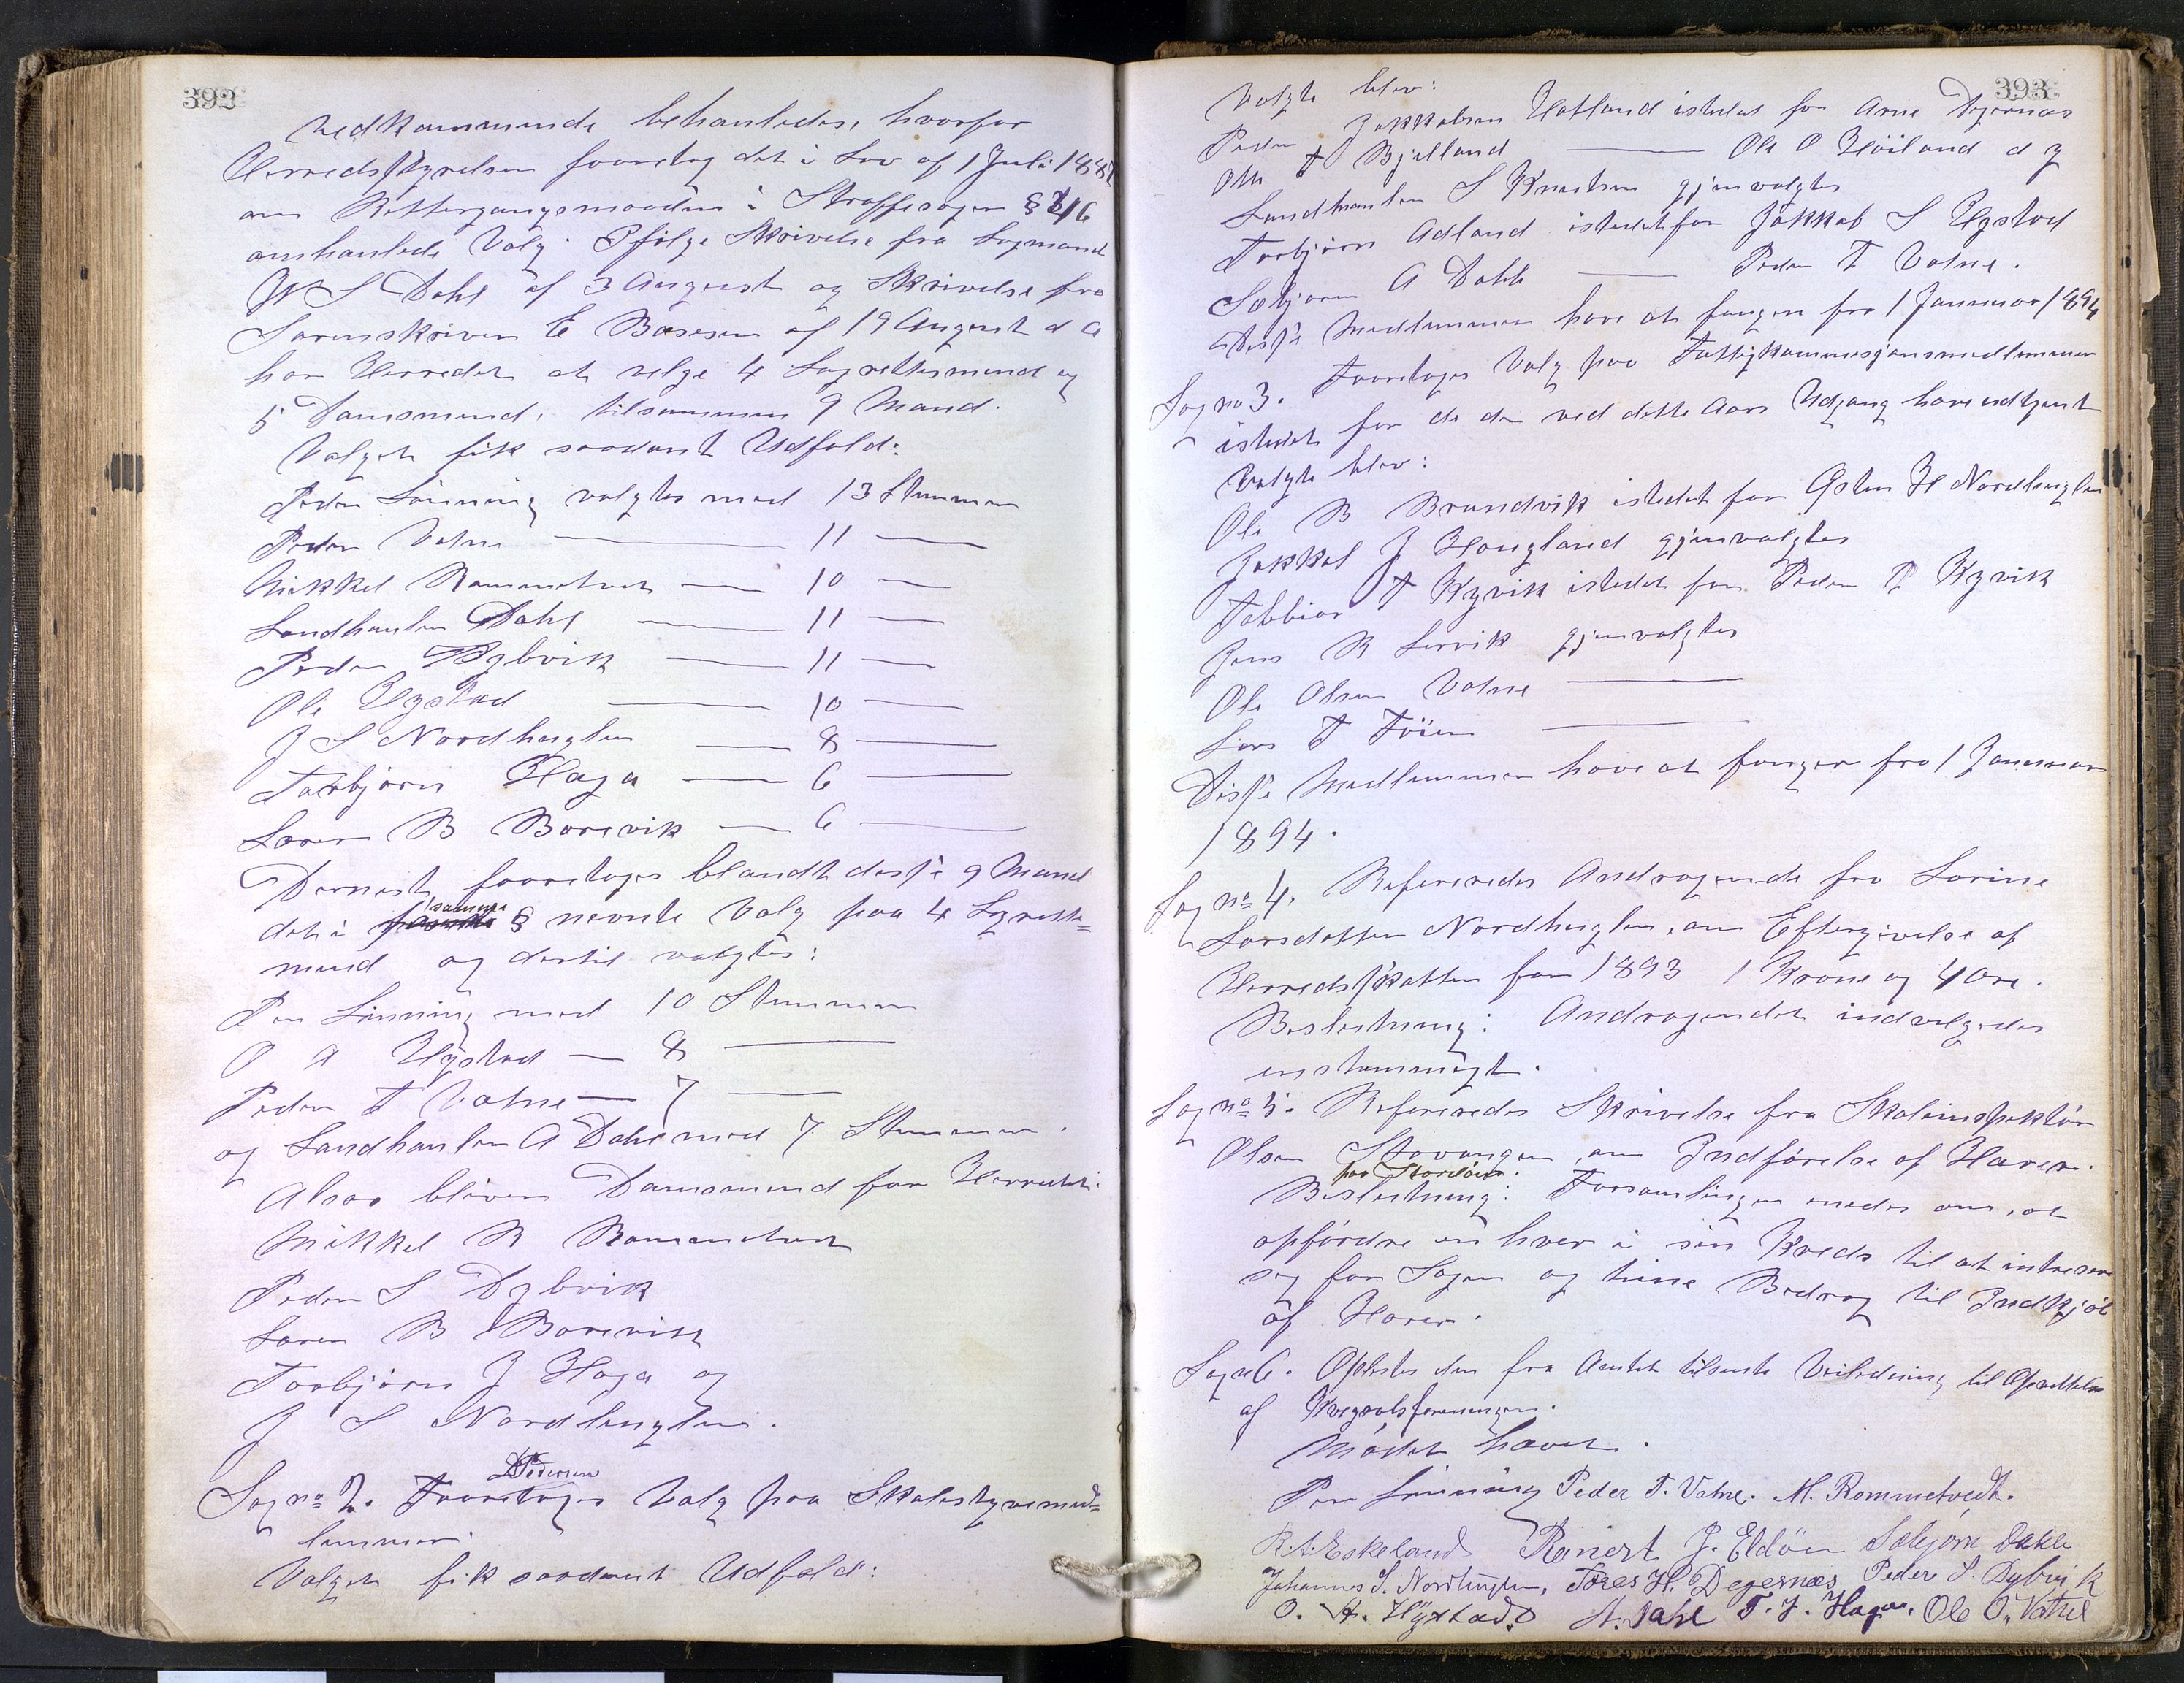 392
Vedkommende behanledes, hvorfor
Herredsstyrelsen fooretog det i Lov af 1 Juli 1887
om Rettergangsmooden i Straffesager §
omhanlede Valg. Ifölge Skrivelse fra Lagmand
S Dahl af 3 August og Skrivelse fra
Sorenskriver E Bøsesen af 19 August d A
har Herredet at velge 4 Lagrettesmend og
5 Domsmend, tilsammen 9 Mand.
Valget fik soodant Udfald:
Peder Linning valgtes med 13 Stemmer
Peder Vatne — 11 —
Mikkel Rommetvet — 10 —
Landhanler Dahl — 11 —
Peder Dybvik — 11 —
Ole Hystad — 10 —
J S Nordhuglen — 8 —
Torbjørn Haga — 6 —
Soren B Borevik — 6 —
Dernest fooretoges blandt desse 9 Mand
det i samme § nevnte Valg paa 4 Lagrette=
mend og dertil valgtes:
Per Linning med 10 Stemmer
O A Hystad — 8 —
Peder T Vatne — 7 —
og Landhanler A Dahl med 7 Stemmer.
Alsoo bliver Domsmend for Herredet:
Mikkel R Rommetvet
Peder S Dybvik
Soren B Borevik
Torbjørn J Haga og
J S Nordhuglen.
Pedersen
Sag no 2. Fooretoges Valg paa Skolestyremed=
lemmer.
Valget fik soodant Udfald:
393
Valgte blev:
Peder Jakkobsen Hatland istedet for Arne Djernes
Ole T Bjelland — Ole O Höiland d y
Landhanler S Knutsen gjenvalgtes
Torbjörn Adland istedetfor Jakkob S Hystad
Sebjorn A Dahle — Peder T Vatne.
Desse Medlemmer have at fungere fra 1 Januar 1894
Sag no 3. Fooretoges Valg paa Fattigkommesjonsmedlemmer
istedet for de der ved dette Aars Udgang have udtjent
Valgte blev:
Ole B Brandvik istedet for Østen H Nordhuglen
Jakkob J Hougland gjenvalgtes
Tobbior T Kyvik istedet for Peder T Kyvik
Jens R Lervik gjenvalgtes
Ole Olsen Vatne —
Lars T Töien —
Desse Medlemmer have at fungere fra 1 Januar
1894.
Sag no 4. Refereredes Andragende fra Sorine
Larsdatter Nordhuglen, om Eftergivelse af
Herredsskatten for 1893 1 Krone og 4 Øre.
Beslutning: Andragendet indvelgedes
enstemmigt.
Sag no 5. Refereredes Skrivelse fra Skoleinspektör
Olsen Stavanger, om Indförelse af Harer
paa Stordöen.
Beslutning: Forsamlingen enedes om, at
opfordre en hver i sin Kreds til at intresere
sig for Sagen og tinne Bedrag til Indkjöb
af Harer.
Sag n 6. Oplestes den fra Amtet tilsente Veiledning til Oprettelse
af Kvegavlsforeninger.
Mödet hævet.
Per Linning Peder T. Vatne. M. Rommetvedt.
R. A. Eskeland Ranert J. Eldöen Sæbjörn Dahle
Johannes S. Nordhuglen, Tores H. Degernæs Peder S. Dybvik
O. A. Hystad. A. Dahl T. J. Haga. Ole O. Vatne